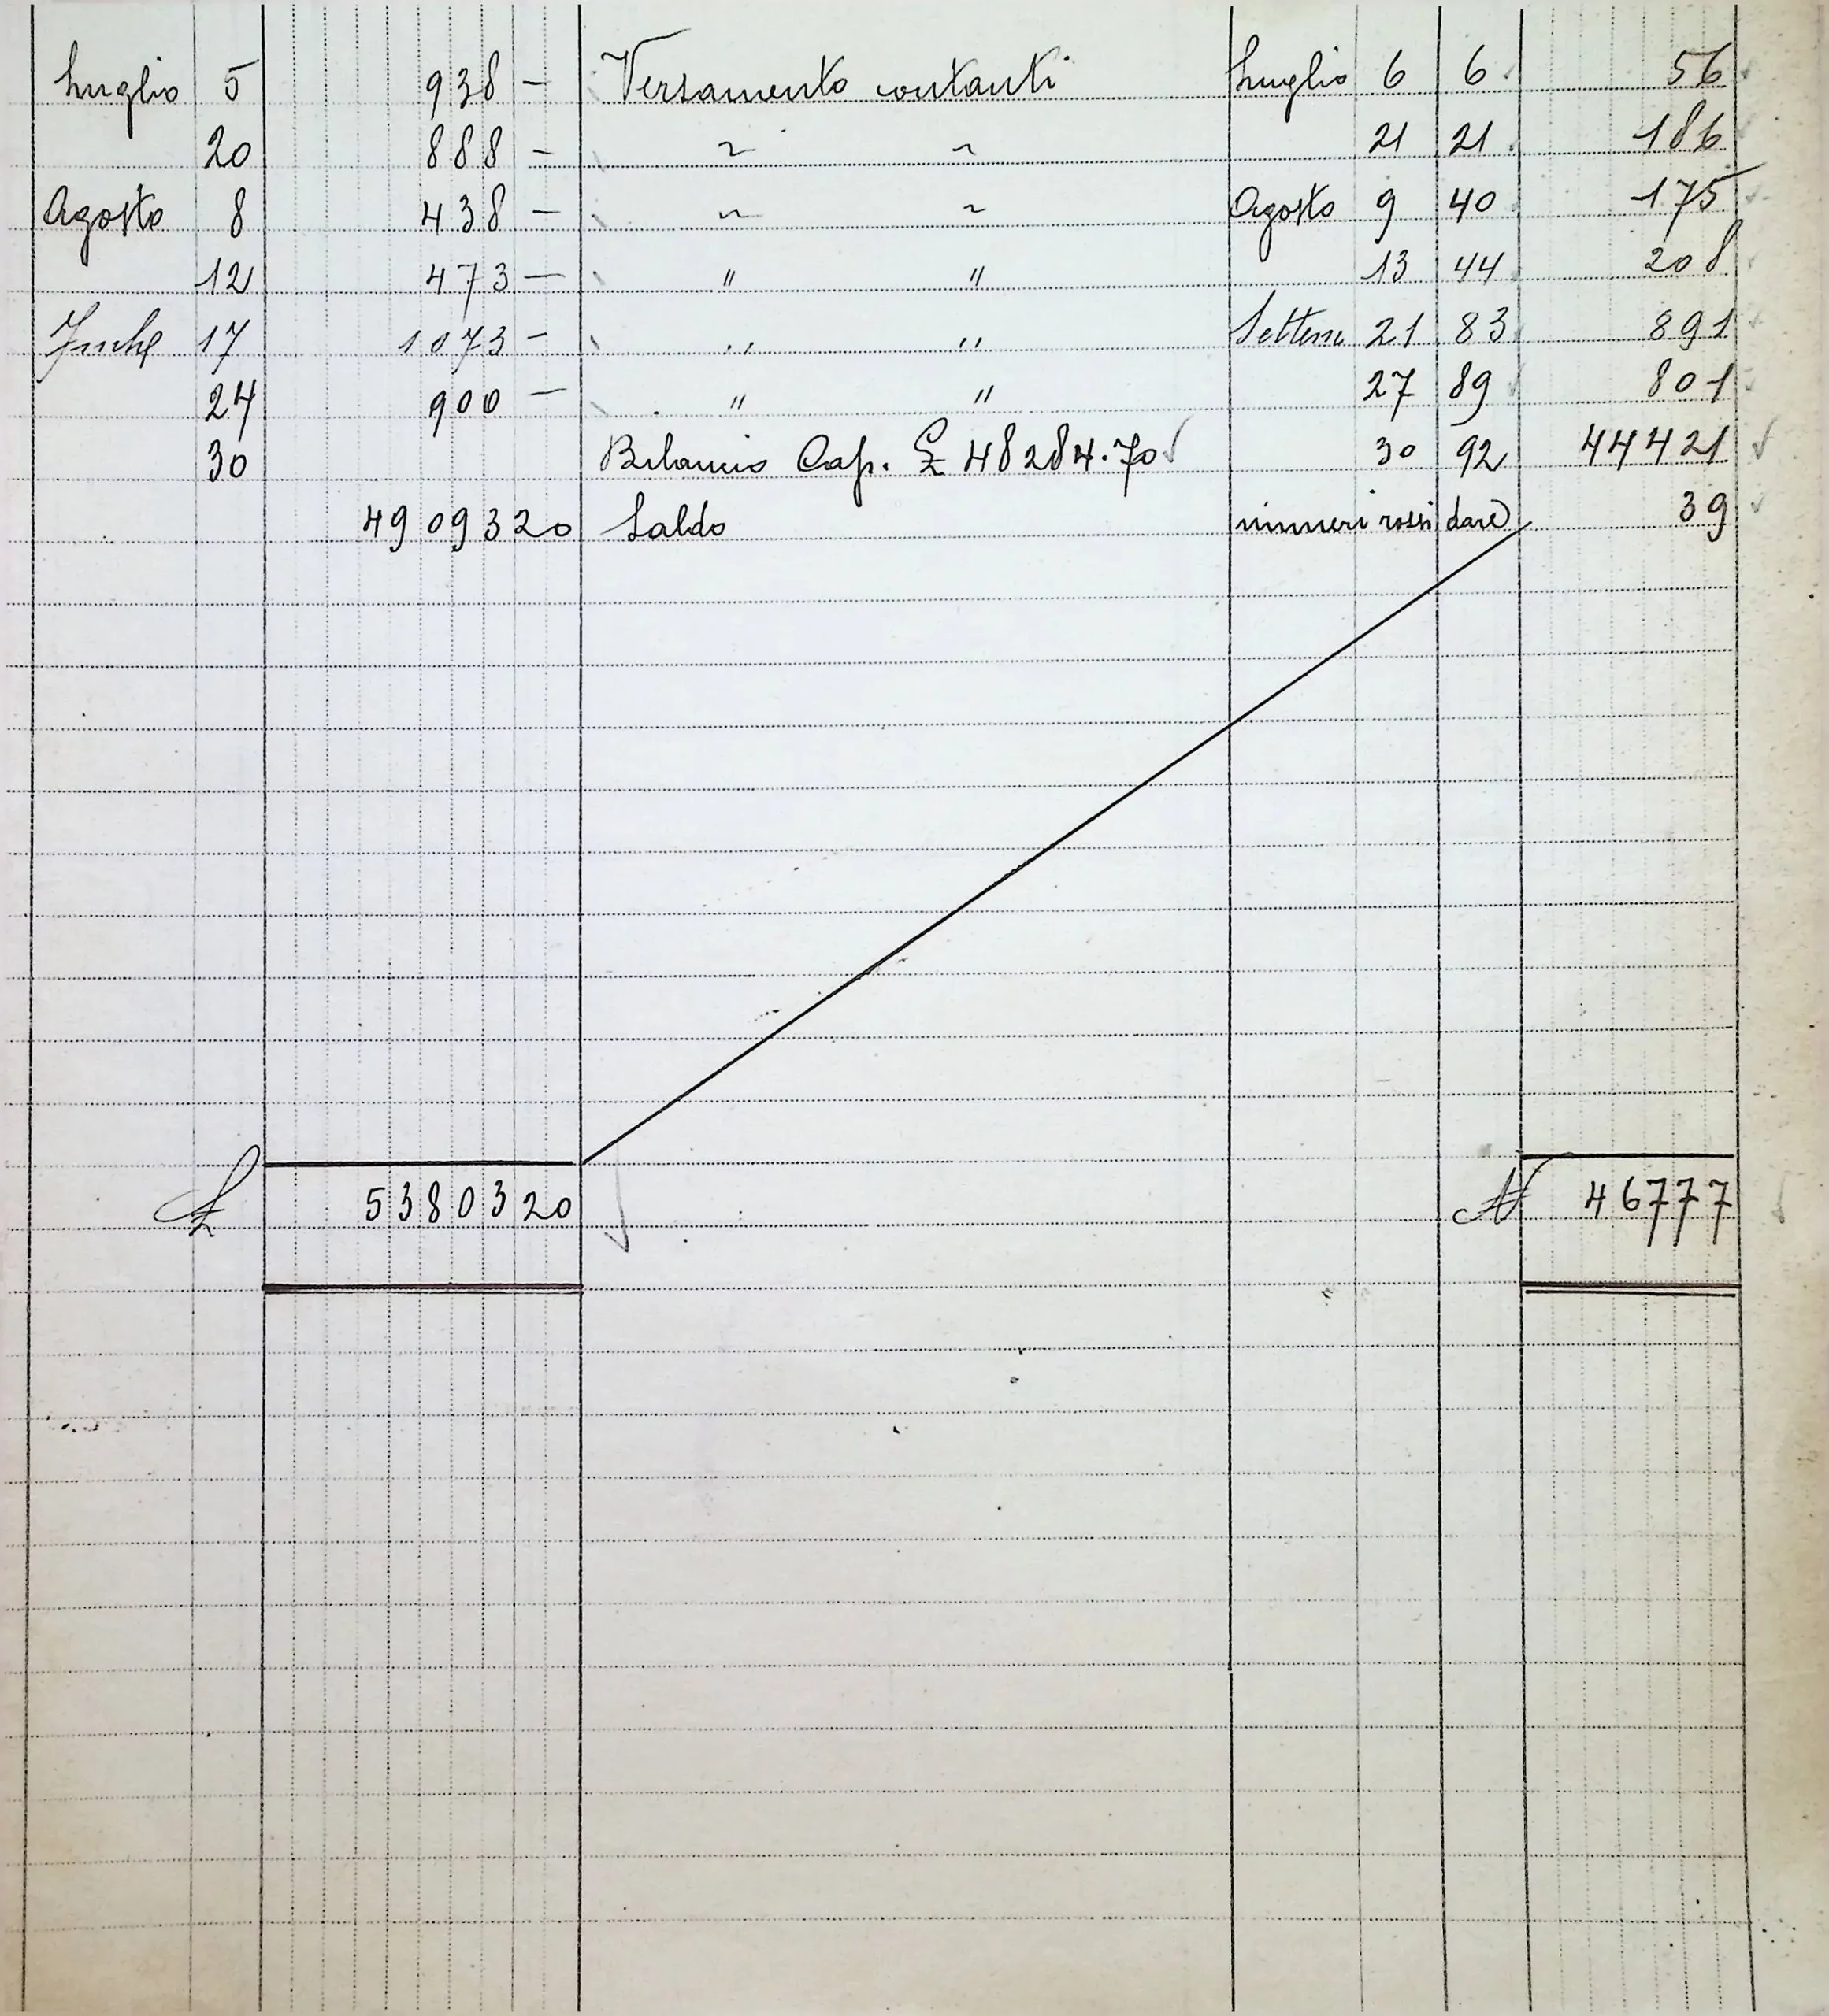 Luglio 5 938 – Versamento contanti Luglio 6 6 56
20 888 – ~ ~ 21 21 186
Agosto 8 438 – ~ ~ Agosto 9 40 175
12 473 – " " 13 44 208
17 1073 – " " Settem 21 83 891
24 900 – " " 27 89 801
30 Bilancio Cap. £ 48284.70 30 92 44421
4909320 Saldo numeri rossi dare 39
£ 5380320 N 46777